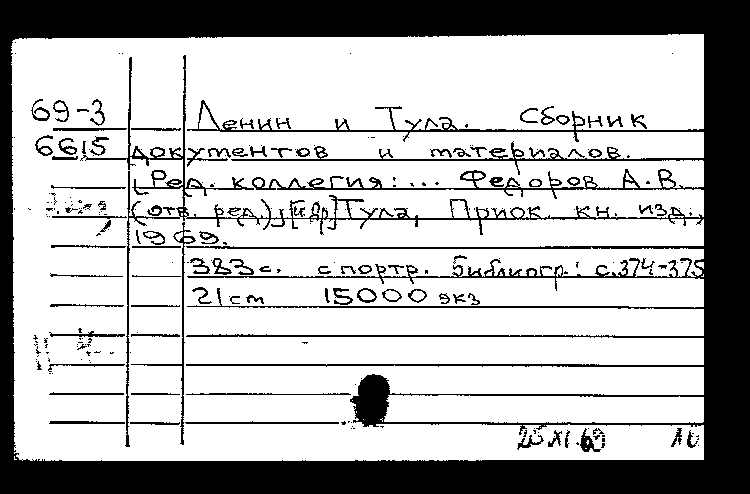 69-3
6615
Ленин и Тула. Сборник
документов и материалов.
[Ред. коллегия:... Федоров А.В.
(отв. ред.)] [и др] Тула, Приок. кн. изд.,
1969.
383 с. с портр. Библиогр.: с.374-375
21 cm 15000 экз
25 XI.69